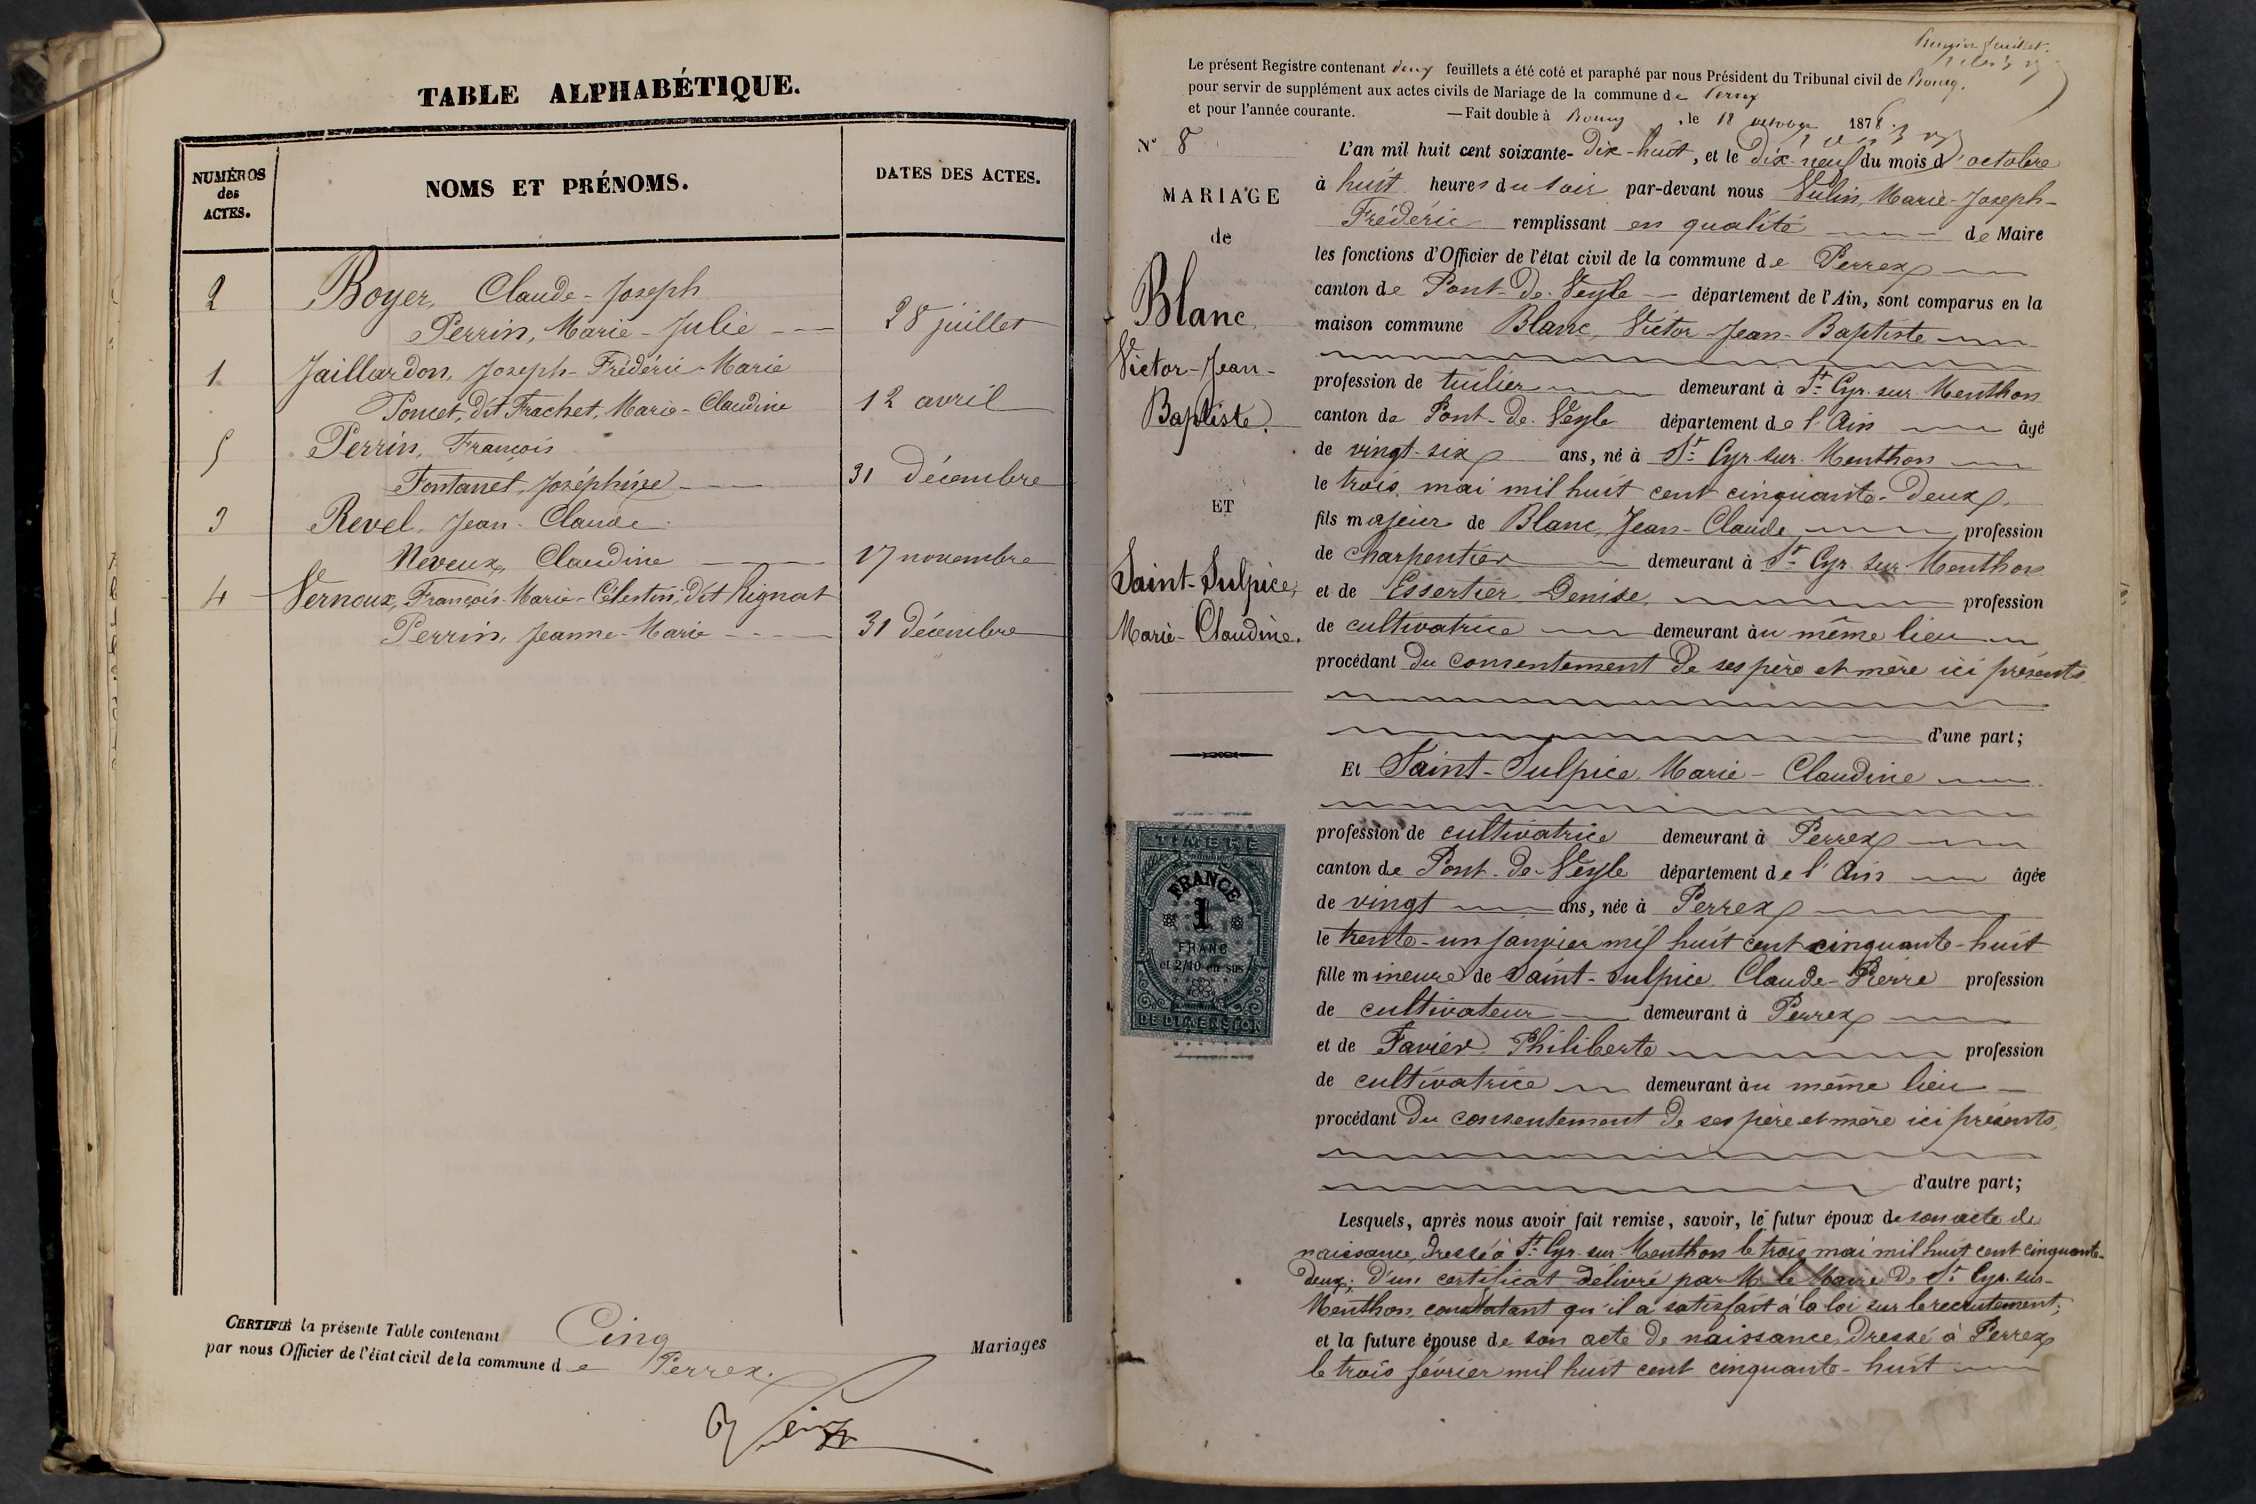 TABLE ALPHABÉTIQUE.
NUMÉROS
des
ACTES.
NOMS ET PRÉNOMS.
DATES DES ACTES.
2 Boyer, Claude-Joseph
Perrin, Marie-Julie 28 juillet
1 Jaillardon, Joseph-Frédéric-Marie
Poncet, dit Frachet, Marie-Claudine 12 avril
5 Perrin, François
Fontanet, Joséphine 31 décembre
3 Revel, Jean-Claude
Neveux, Claudine 17 novembre
4 Vernoux, François-Marie-Célestin, dit Rignat
Perrin, Jeanne-Marie 31 décembre
CERTIFIÉ la présente Table contenant Cinq Mariages
par nous Officier de l'état civil de la commune de Perrex.
Le présent Registre contenant deux feuillets a été coté et paraphé par nous Président du Tribunal civil de Bourg.
pour servir de supplément aux actes civils de Mariage de la commune de Perrex
et pour l'année courante. — Fait double à Bourg, le 18 octobre 1878.
N° 8
MARIAGE
de
Blanc,
Victor-Jean-
Baptiste.
ET
Saint-Sulpice,
Marie-Claudine.
TIMBRE
FRANCE
1
FRANC
et 2/10 en sus
DE DIMENSION
L'an mil huit cent soixante-dix-huit, et le dix-neuf du mois d'octobre
à huit heures du soir par-devant nous Vulin, Marie-Joseph-
Frédéric remplissant en qualité de Maire
les fonctions d'Officier de l'état civil de la commune de Perrex
canton de Pont-de-Veyle département de l'Ain, sont comparus en la
maison commune Blanc, Victor-Jean-Baptiste
profession de tuilier demeurant à St Cyr-sur-Menthon
canton de Pont-de-Veyle département de l'Ain âgé
de vingt-six ans, né à St Cyr-sur-Menthon
le trois mai mil huit cent cinquante-deux,
fils majeur de Blanc, Jean-Claude, profession
de charpentier demeurant à St Cyr-sur-Menthon
et de Essertier, Denise, profession
de cultivatrice demeurant au même lieu
procédant du consentement de ses père et mère ici présents,
d'une part;
Et Saint-Sulpice, Marie-Claudine
profession de cultivatrice demeurant à Perrex
canton de Pont-de-Veyle département de l'Ain âgée
de vingt ans, née à Perrex
le trente-un janvier mil huit cent cinquante-huit
fille mineure de Saint-Sulpice, Claude-Pierre profession
de cultivateur demeurant à Perrex
et de Favier, Philiberte profession
de cultivatrice demeurant au même lieu
procédant du consentement de ses père et mère ici présents,
d'autre part;
Lesquels, après nous avoir fait remise, savoir, le futur époux de son acte de
naissance, dressé à St Cyr-sur-Menthon le trois mai mil huit cent cinquante-
deux; d'un certificat délivré par M. le Maire de St Cyr-sur-
Menthon, constatant qu'il a satisfait à la loi sur le recrutement;
et la future épouse de son acte de naissance, dressé à Perrex
le trois février mil huit cent cinquante-huit